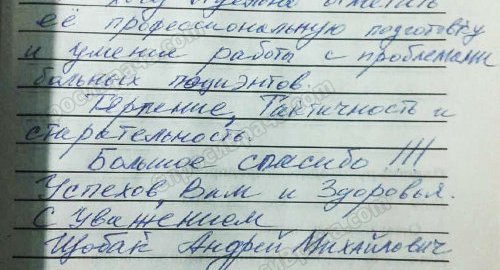 хочу и должна отметить
её профессиональную подготовку
и умение работы с проблемами
больных пациэнтов.
Терпение, Тактичность и
старательность.
Большое спасибо !!!
Успехов Вам и Здоровья.
С уважением
Щобак Андрей Михайлович